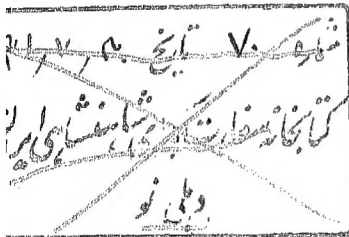 شماره ۷۰ تاریخ
کتابخانه سفارت شاهنشاهی ایران
دهلی نو